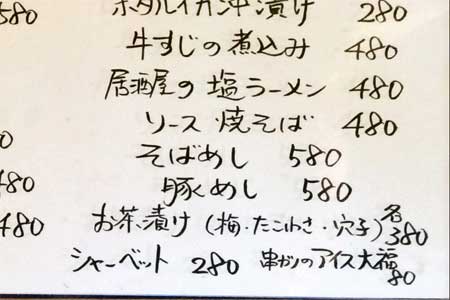 580
ホタルイカ沖漬け 280
牛すじの煮込み 480
居酒屋の塩ラーメン 480
ソース焼そば 480
0
そばめし 580
480
豚めし 580
480
お茶漬け(梅・たこわさ・穴子)各380
シャーベット 280 串ガリのアイス大福 80